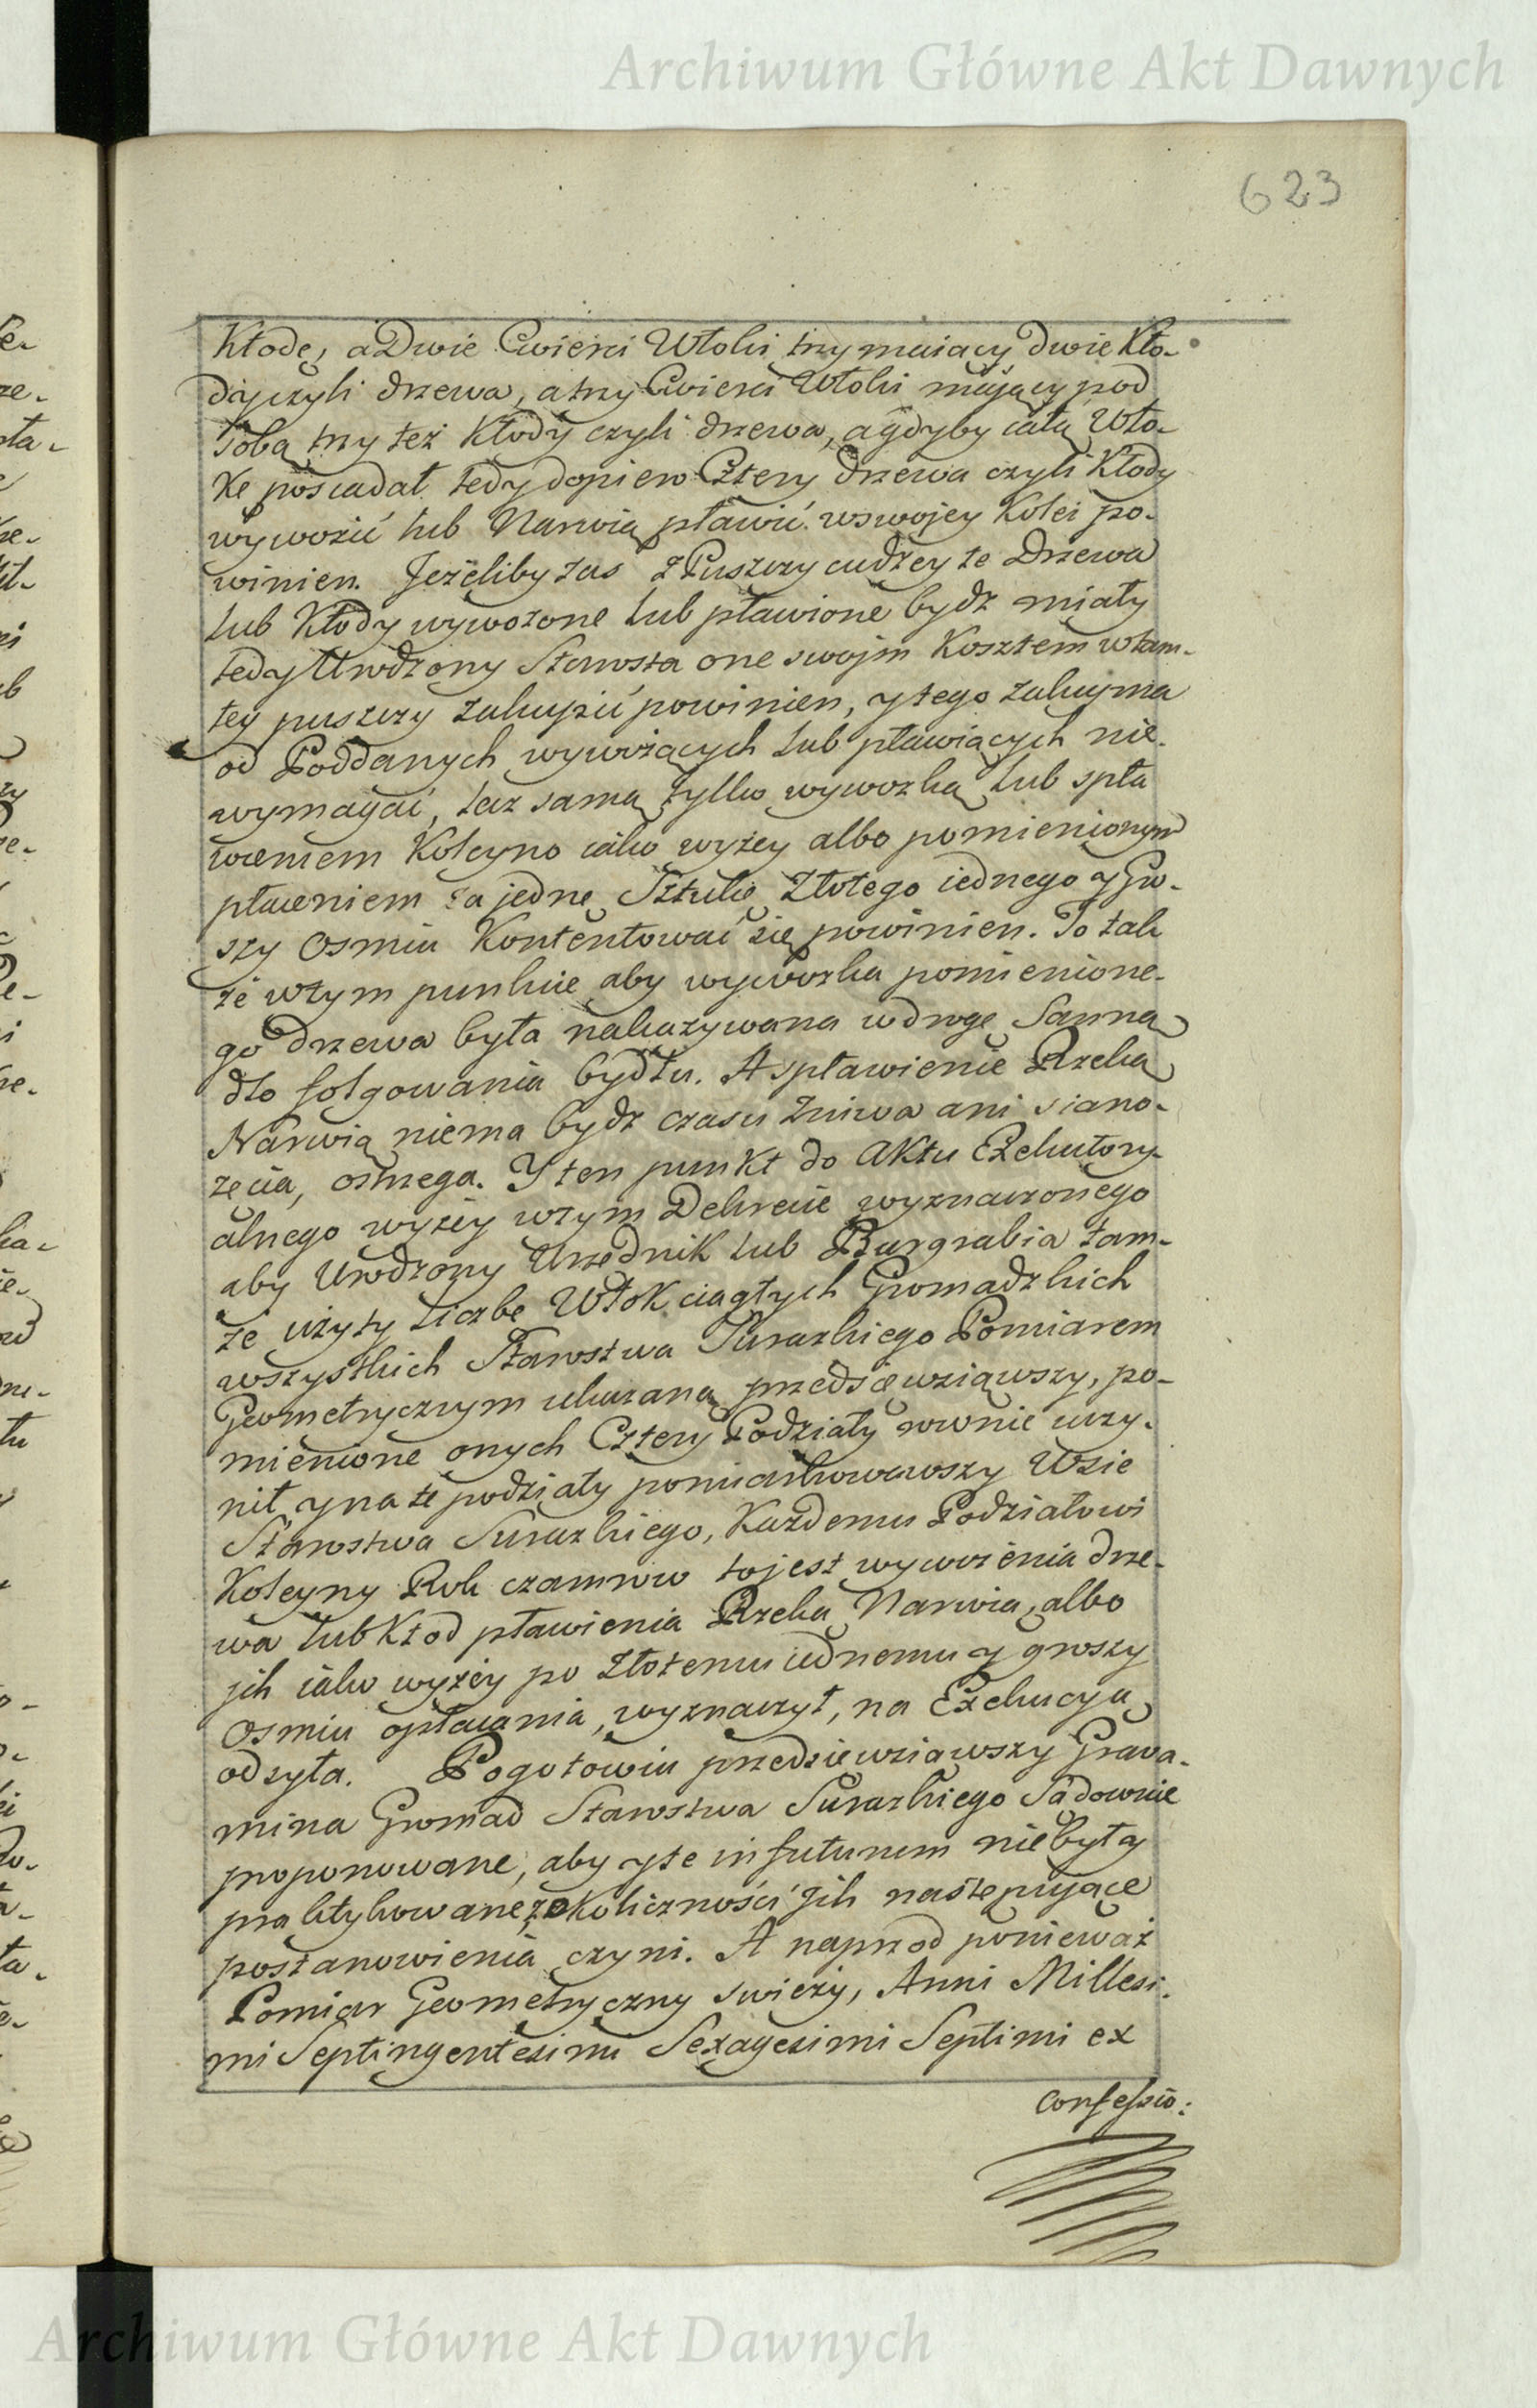 Archiwum Główne Akt Dawnych
623
Kłodę, a Dwie Cwierci Włoki trzymaiący dwie Kło-
dy czyli drzewa, a trzy Cwierci Włoki mający pod
sobą trzy też Kłody czyli drzewa, a gdyby całą Wło-
kę posiadał tedy dopiero Cztery drzewa czyli Kłody
wywozić lub Narwią pławić w swojey Kolei po-
winien. Jeżeliby zas z Puszczy cudzey te Drzewa
lub Kłody wywozone lub pławione bydz miały
tedy Urodzony Starosta one swojm Kosztem w tam-
tey puszczy zakupić powinien, y tego zakupna
od Poddanych wywożących lub pławiących nie
wymagać, lecz samą tylko wywozką lub spła
wieniem Koleyno iako wyżey albo pomienionym
płaceniem za jednę Sztukę Złotego iednego y Gro-
szy Osmiu Kontentować się powinien. To tak
że w tym punkcie aby wywozka pomienione-
go drzewa była nakazywana w drogę Sanną
dlo folgowania bydłu. A spławienie Rzeką
Narwią niema bydz czasu żniwa ani siano-
żęcia, ostrzega. Y ten punkt do Aktu Exekutory-
alnego wyżey w tym Dekrecie wyznaczonego
aby Urodzony Urzędnik lub Burgrabia tam-
że użyty Liczbę Włok ciągłych Gromadzkich
wszystkich Starostwa Surazkiego Pomiarem
Geometrycznym ukazaną przedsięwziąwszy, po-
mienione onych Cztery Podziały rownie uczy-
nił y na te podziały pomiarkowawszy Wsie
Starostwa Surazkiego, Każdemu Podziałowi
Koleyny Rok czamrow to jest wywożenia drze-
wa lub Kłod pławienia Rzeką Narwią, albo
jch iako wyżey po złotemu iednemu y groszy
Osmiu opłacania, wyznaczył, na Exekucyą
odsyła. Pogotowiu przedsięwziąwszy Grava-
mina Gromad Starostwa Surazkiego Sądownie
proponowane, aby y te in futurum nie były
praktykowane z okoliczności Jch następujące
postanowienia czyni. A naprzod ponieważ
Pomiar Geometryczny swieży, Anni Millesi-
mi Septingentesimi Sexagesimi Septimi ex
Confessio:
Archiwum Główne Akt Dawnych